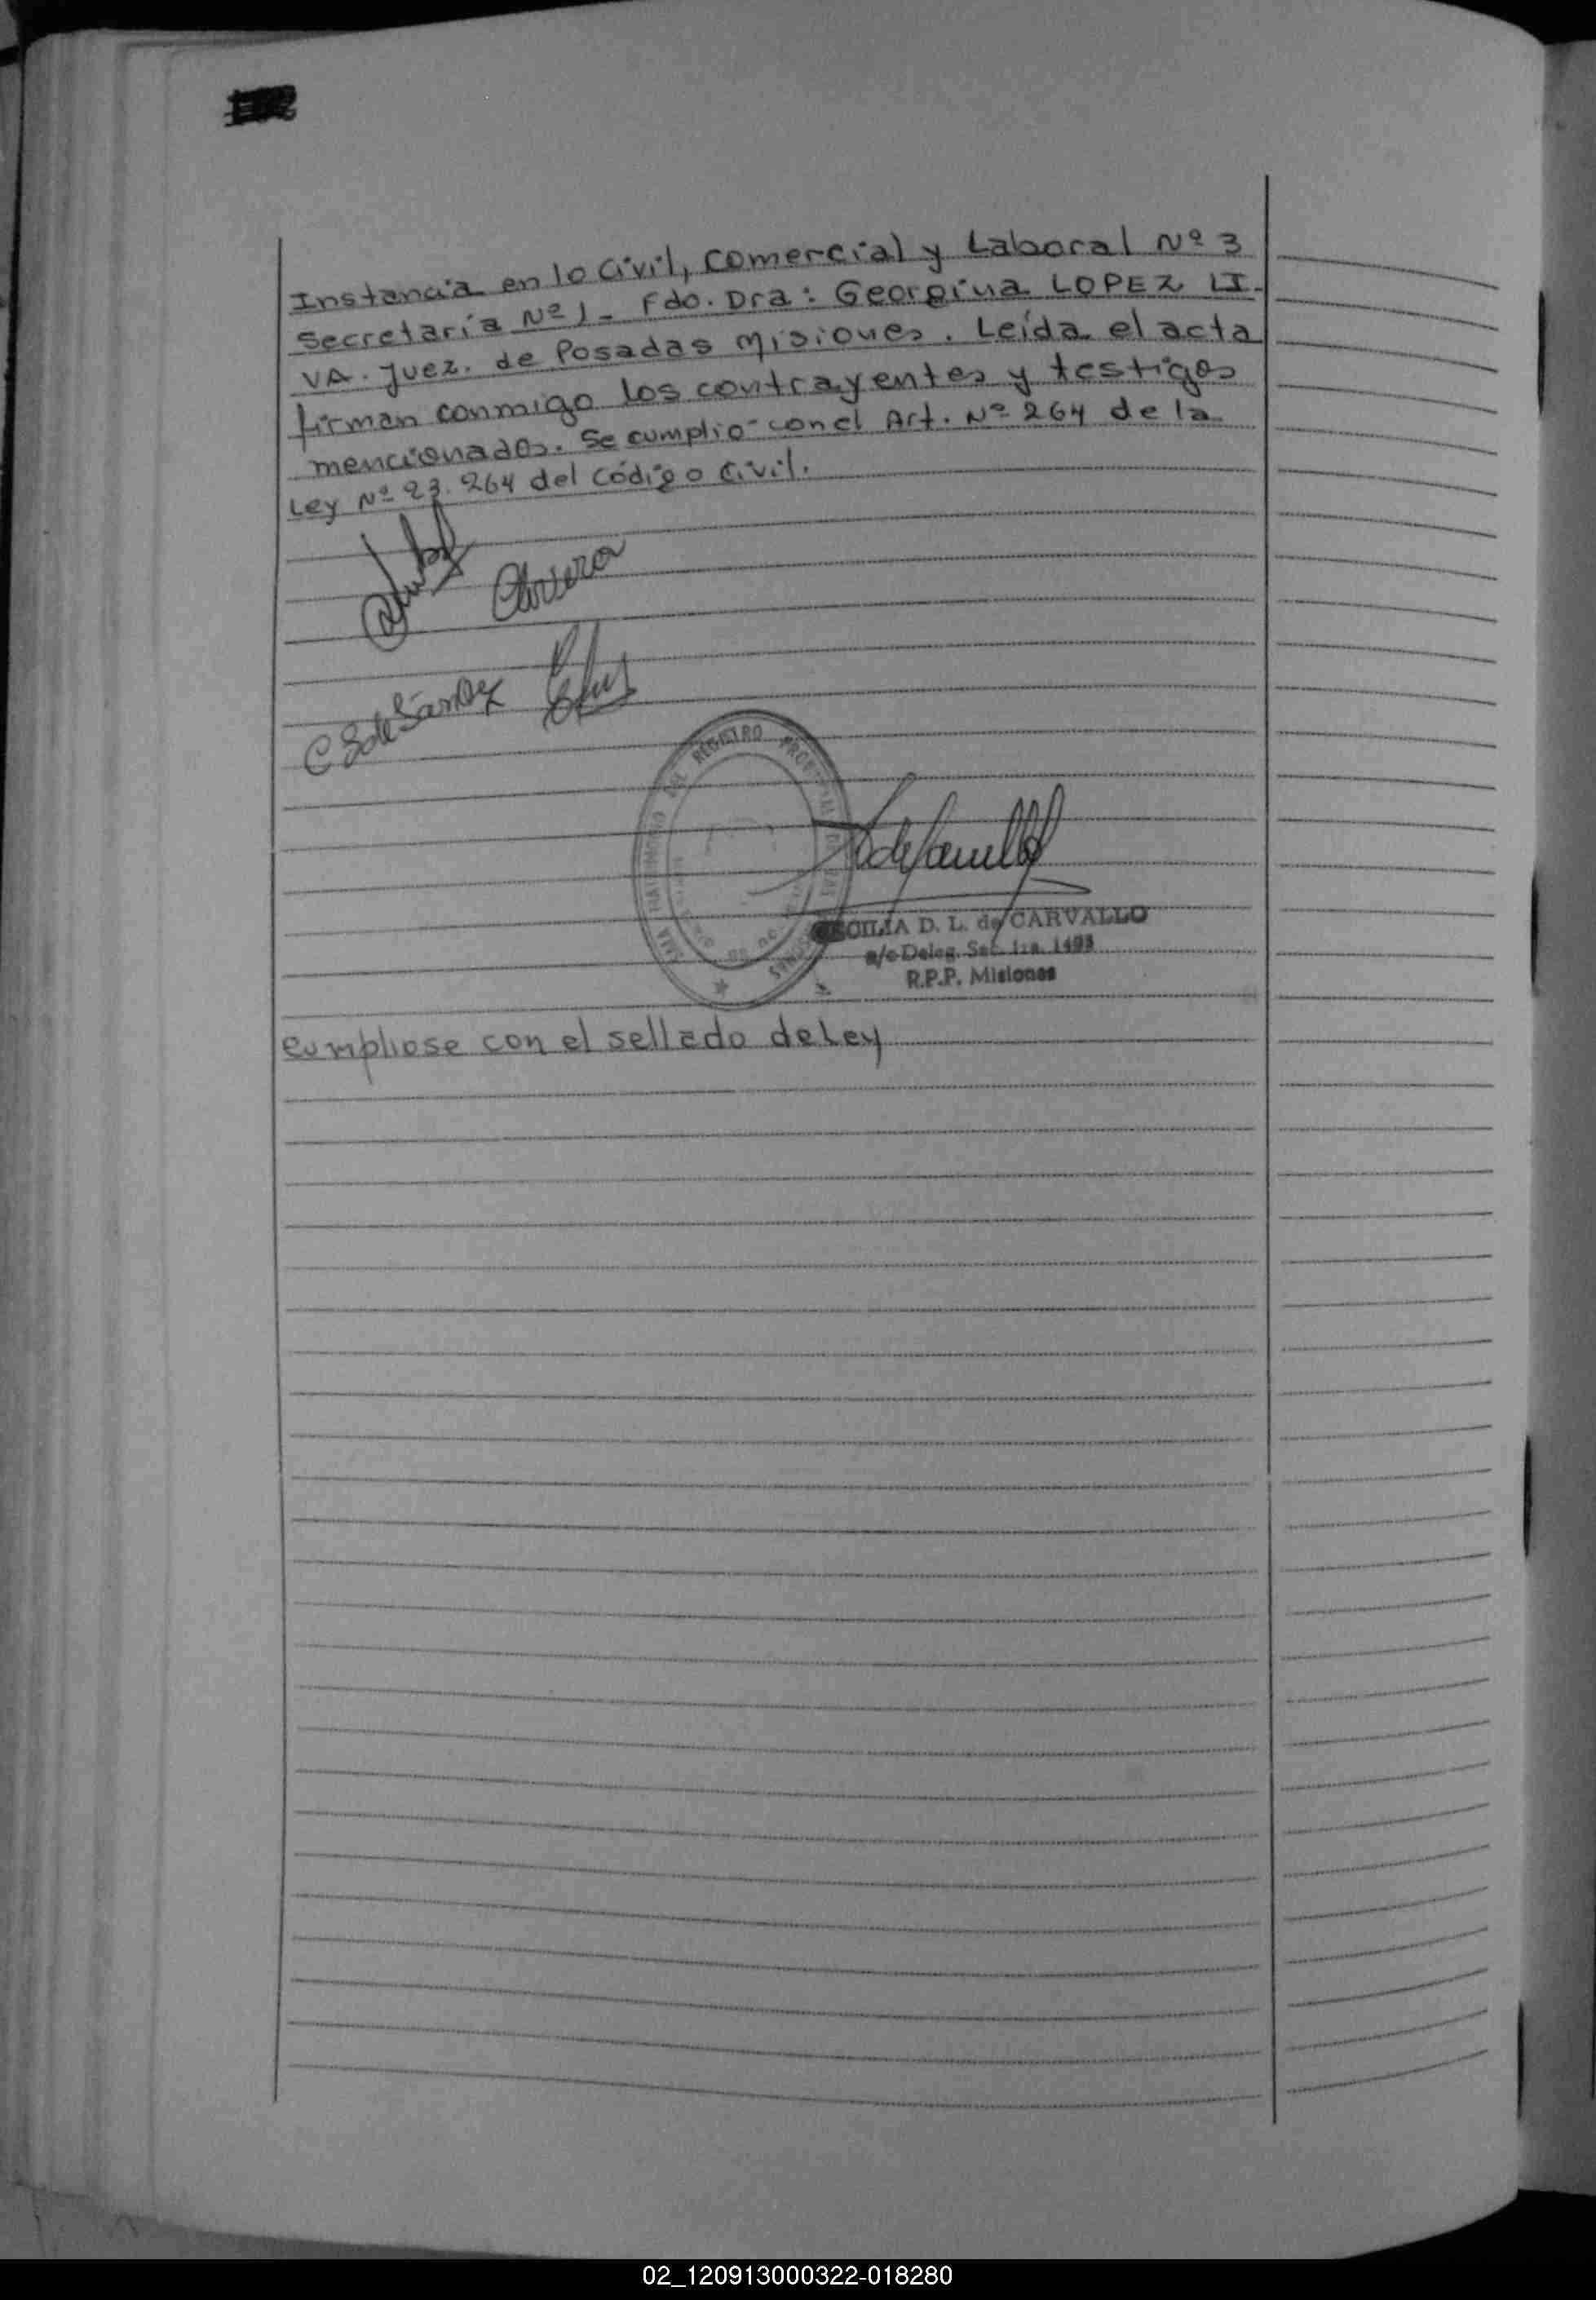 Instancia en lo Civil, Comercial y Laboral Nº 3
Secretaría Nº 1- Fdo. Dra: Georgina LOPEZ LI-
VA. Juez. de Posadas Misiones. Leída el acta
firman conmigo los contrayentes y testigos
mencionados. Se cumplió con el Art. Nº 264 de la
Ley Nº 23.264 del Código Civil.
C S de Sánchez
MATRIMONIO DEL REGISTRO
CECILIA D. L. de CARVALLO
a/c Deleg. Sec. 1ra. 1493
R.P.P. Misiones
Cumpliose con el sellado de Ley
02_120913000322-018280